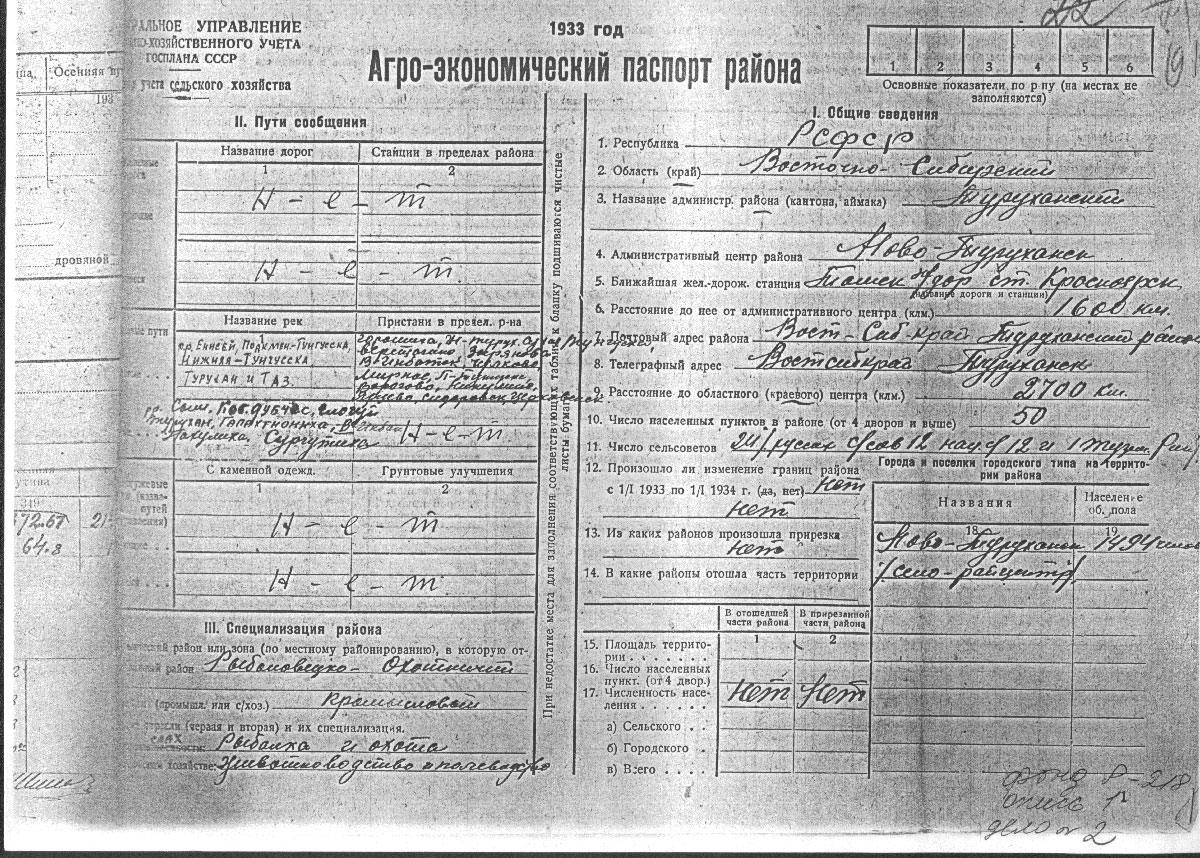 22
РАЛЬНОЕ УПРАВЛЕНИЕ
ХОЗЯЙСТВЕННОГО УЧЕТА
ГОСПЛАНА СССР
учета сельского хозяйства
1933 год
Агро-экономический паспорт района
1 2 3 4 5 6
Основные показатели по р-ну (на местах не
заполняются)
Осенняя
193
дровяной
372.67 21
64.8
II. Пути сообщения
Название дорог Станции в пределах района
1 2
Н - е - т
Н - е - т
Название рек Пристани в предел. р-на
ные пути
р.р. Енисей, Подкмен-Тунгусска,
Нижняя-Тунгусска,
Турухан и Таз.
Верещагино,
Мирное,
Ворогово,
Сургутиха
Н-е-т
С каменной одежд. Грунтовые улучшения
1 2
Н - е - т
Н - е - т
III. Специализация района
район или зона (по местному районированию), в которую от-
район Рыболовецко-Охотничий
(промышл. или с/хоз.) промысловой
(первая и вторая) и их специализация.
Рыбалка и охота
хозяйстве: Животноводство и полеводство
При недостатке места для заполнения соответствующих таблиц к бланку подшиваются чистые
листы бумаги
I. Общие сведения
1. Республика РСФСР
2. Область (край) Восточно-Сибирский
3. Название администр. района (кантона, аймака) Туруханский
4. Административный центр района Ново-Туруханск
5. Ближайшая жел.-дорож. станция Томск ж/дор. ст. Красноярск
(название дороги и станции)
6. Расстояние до нее от административного центра (клм.) 1600 км.
7. Почтовый адрес района Вост-Сиб край Туруханский район
8. Телеграфный адрес Востсибкрай Туруханск
9. Расстояние до областного (краевого) центра (клм.) 2700 км.
10. Число населенных пунктов в районе (от 4 дворов и выше) 50
11. Число сельсоветов 24/русск с/сов 12 нац. 12 и 1 тузем.
12. Произошло ли изменение границ района
с 1/I 1933 по 1/I 1934 г. (да, нет) нет
нет
13. Из каких районов произошла прирезка
нет
14. В какие районы отошла часть территории
Города и поселки городского типа на террито-
рии района
Названия Население об. пола
18 19
Ново-Туруханск 1494
/село-райцентр/
В отошедшей части района В прирезанной части района
1 2
15. Площадь террито-
рии
16. Число населенных
пункт. (от 4 двор.)
17. Численность насе-
ления нет нет
а) Сельского
б) Городского
в) Всего
фонд Р-218
опись 1
дело № 2